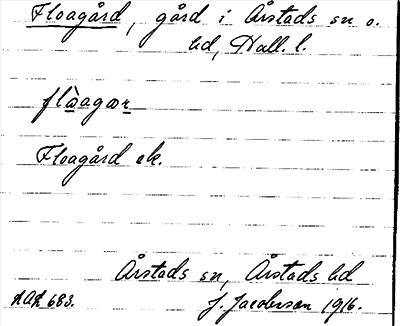 Floagård, gård i Årstads sn o.
hd, Hall. l.
flɑ̀agær
Floagård ek.
Årstads sn, Årstads hd
AAk 683. J. Jacobsson 1916.